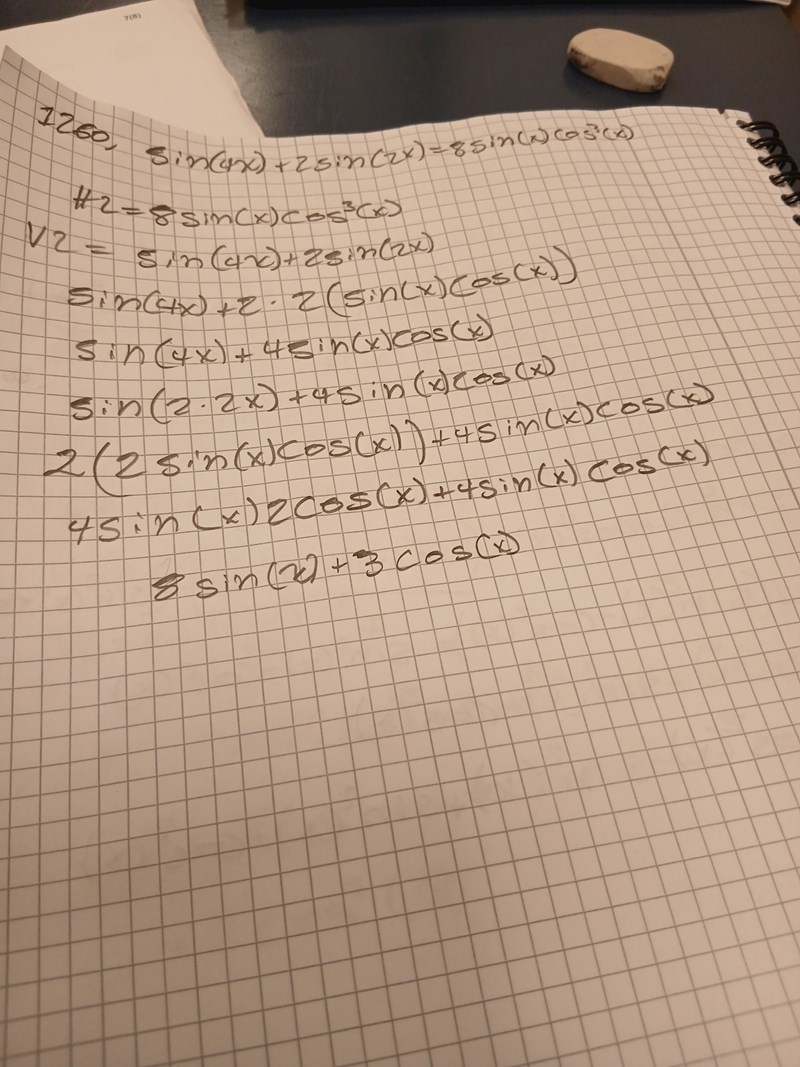 7(8)
1260, sin(4x)+2sin(2x)=8sin(x)cos³(x)
H2=8sin(x)cos³(x)
V2= sin(4x)+2sin(2x)
sin(4x)+2·2(sin(x)cos(x))
sin(4x)+4sin(x)cos(x)
sin(2·2x)+4sin(x)cos(x)
2(2sin(x)cos(x))+4sin(x)cos(x)
4sin(x)2cos(x)+4sin(x)cos(x)
8sin(x)+3cos(x)